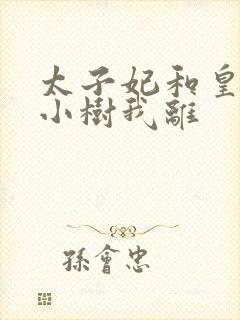 太子妃和皇
小樹我離
孫會忠